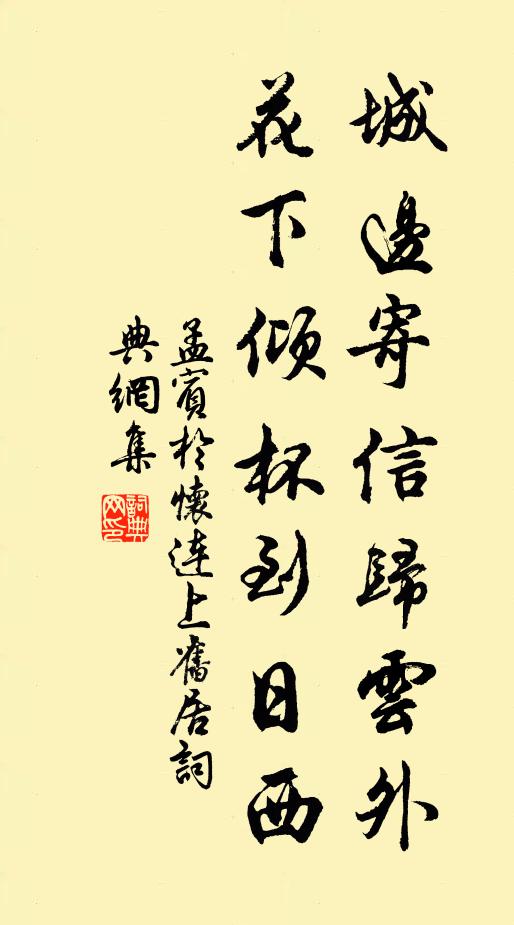 城邊寄信歸雲外
花下傾杯到日西
孟賓於懷連上舊居詞
典網集
詞典
网印